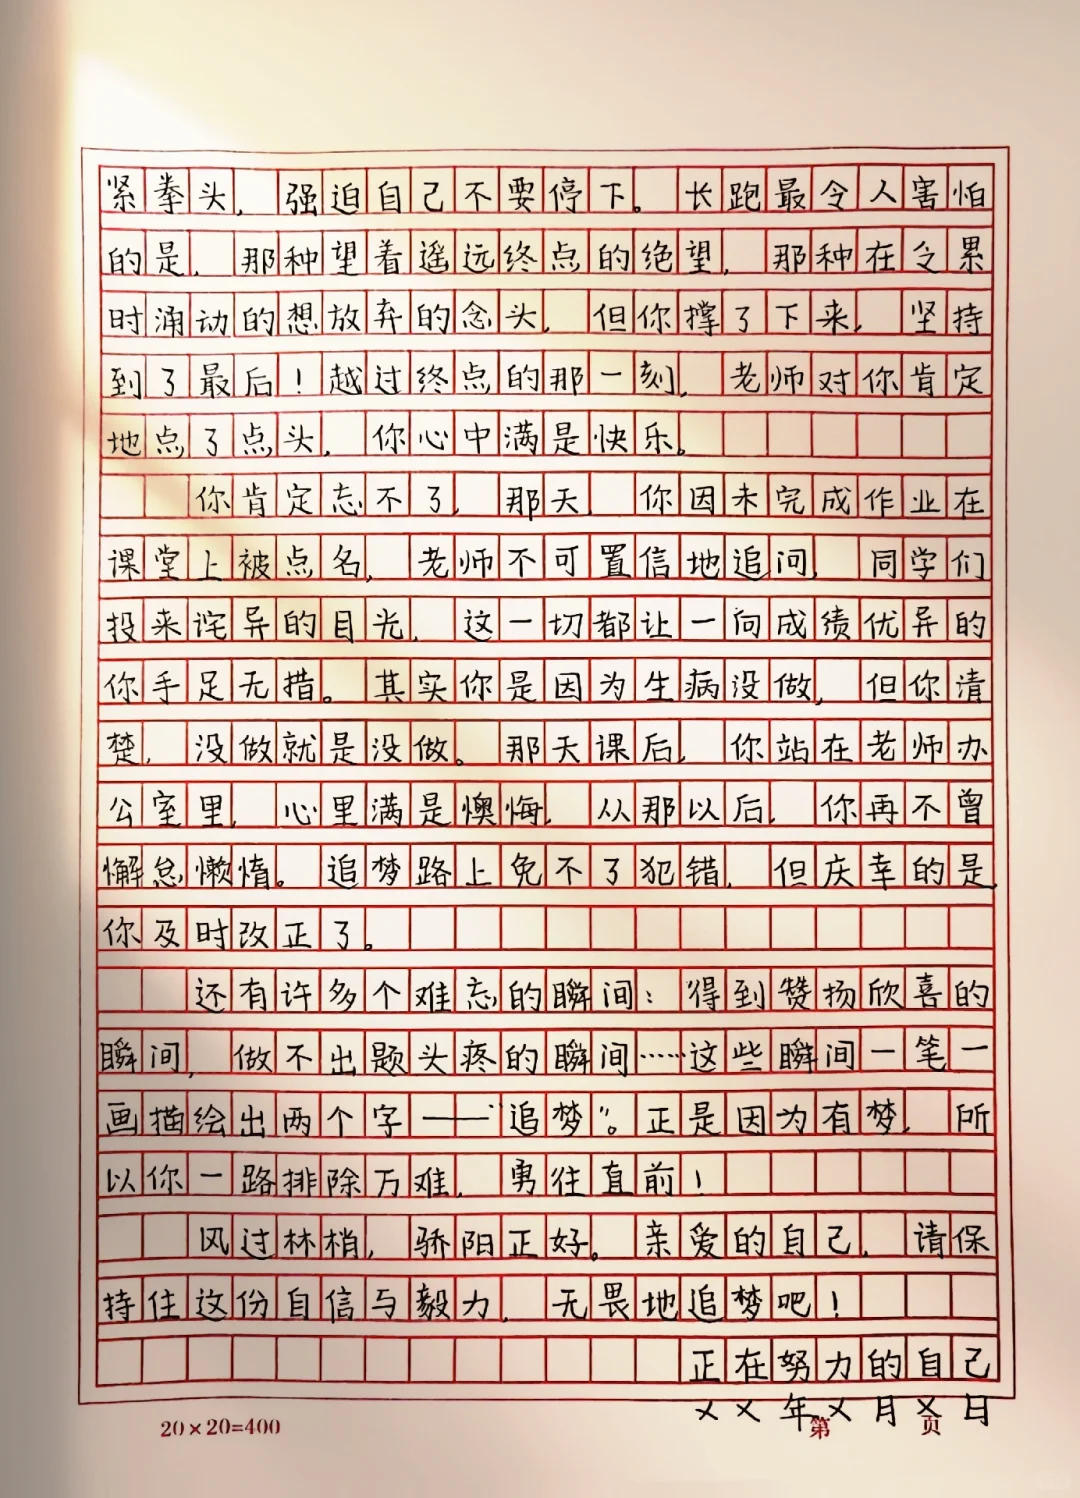 紧拳头,强迫自己不要停下。长跑最令人害怕
的是,那种望着遥远终点的绝望,那种在令累
时涌动的想放弃的念头,但你撑了下来,坚持
到了最后!越过终点的那一刻,老师对你肯定
地点了点头,你心中满是快乐。
你肯定忘不了,那天,你因未完成作业在
课堂上被点名,老师不可置信地追问,同学们
投来诧异的目光,这一切都让一向成绩优异的
你手足无措。其实你是因为生病没做,但你清
楚,没做就是没做。那天课后,你站在老师办
公室里,心里满是懊悔,从那以后,你再不曾
懈怠懒惰。追梦路上免不了犯错,但庆幸的是,
你及时改正了。
还有许多个难忘的瞬间:得到赞扬欣喜的
瞬间,做不出题头疼的瞬间……这些瞬间一笔一
画描绘出两个字——“追梦”。正是因为有梦,所
以你一路排除万难,勇往直前!
风过林梢,骄阳正好。亲爱的自己,请保
持住这份自信与毅力,无畏地追梦吧!
正在努力的自己
××年×月×日
20×20=400 第 页